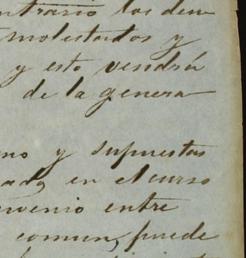 ntrario los den
molestados y
y esto vendrá
de la genera
no y supuestas
ado, en el curso
nvenio entre
comun, puede